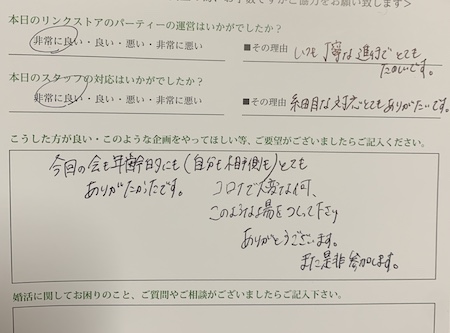 お手数ですがご協力をお願い致します>
本日のリンクストアのパーティーの運営はいかがでしたか？
非常に良い・良い・悪い・非常に悪い ■その理由 いつも丁寧な進行でとても
たのしいです。
本日のスタッフの対応はいかがでしたか？
非常に良い・良い・悪い・非常に悪い ■その理由 細目な対応とてもありがたいです。
こうした方が良い・このような企画をやってほしい等、ご要望がございましたらご記入ください。
今回の会も年齢的にも(自分も相手側も)とても
ありがたかったです。 コロナで大変な何、
このような場をつくって下さり
ありがとうございます。
また是非参加します。
婚活に関してお困りのこと、ご質問やご相談がございましたらご記入下さい。